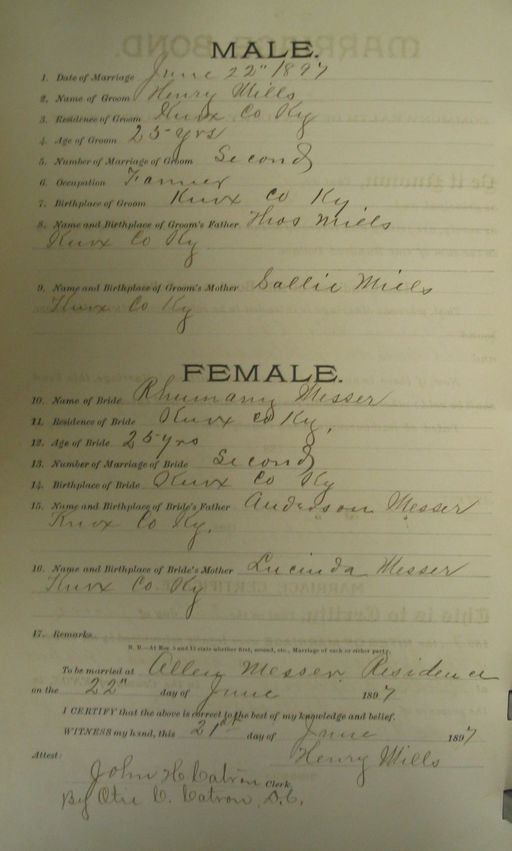 MALE.
1. Date of Marriage June 22" 1897
2. Name of Groom Henry Mills
3. Residence of Groom Knox Co Ky
4. Age of Groom 25 yrs
5. Number of Marriage of Groom Second
6. Occupation Farmer
7. Birthplace of Groom Knox Co Ky
8. Name and Birthplace of Groom's Father Thos Mills
Knox Co Ky
9. Name and Birthplace of Groom's Mother Sallie Mills
Knox Co Ky
FEMALE.
10. Name of Bride Rhumany Messer
11. Residence of Bride Knox Co Ky,
12. Age of Bride 25 yrs
13. Number of Marriage of Bride Second
14. Birthplace of Bride Knox Co Ky
15. Name and Birthplace of Bride's Father Anderson Messer
Knox Co Ky.
16. Name and Birthplace of Bride's Mother Lucinda Messer
Knox Co Ky
17. Remarks
N. B.—At Nos. 5 and 13 state whether first, second, etc., Marriage of each or either party.
To be married at Allen Messer Residence
on the 22" day of June 1897
I CERTIFY that the above is correct to the best of my knowledge and belief.
WITNESS my hand, this 21st day of June 1897
Henry Mills
Attest:
John H Catron Clerk
By Otis C. Catron, D.C.